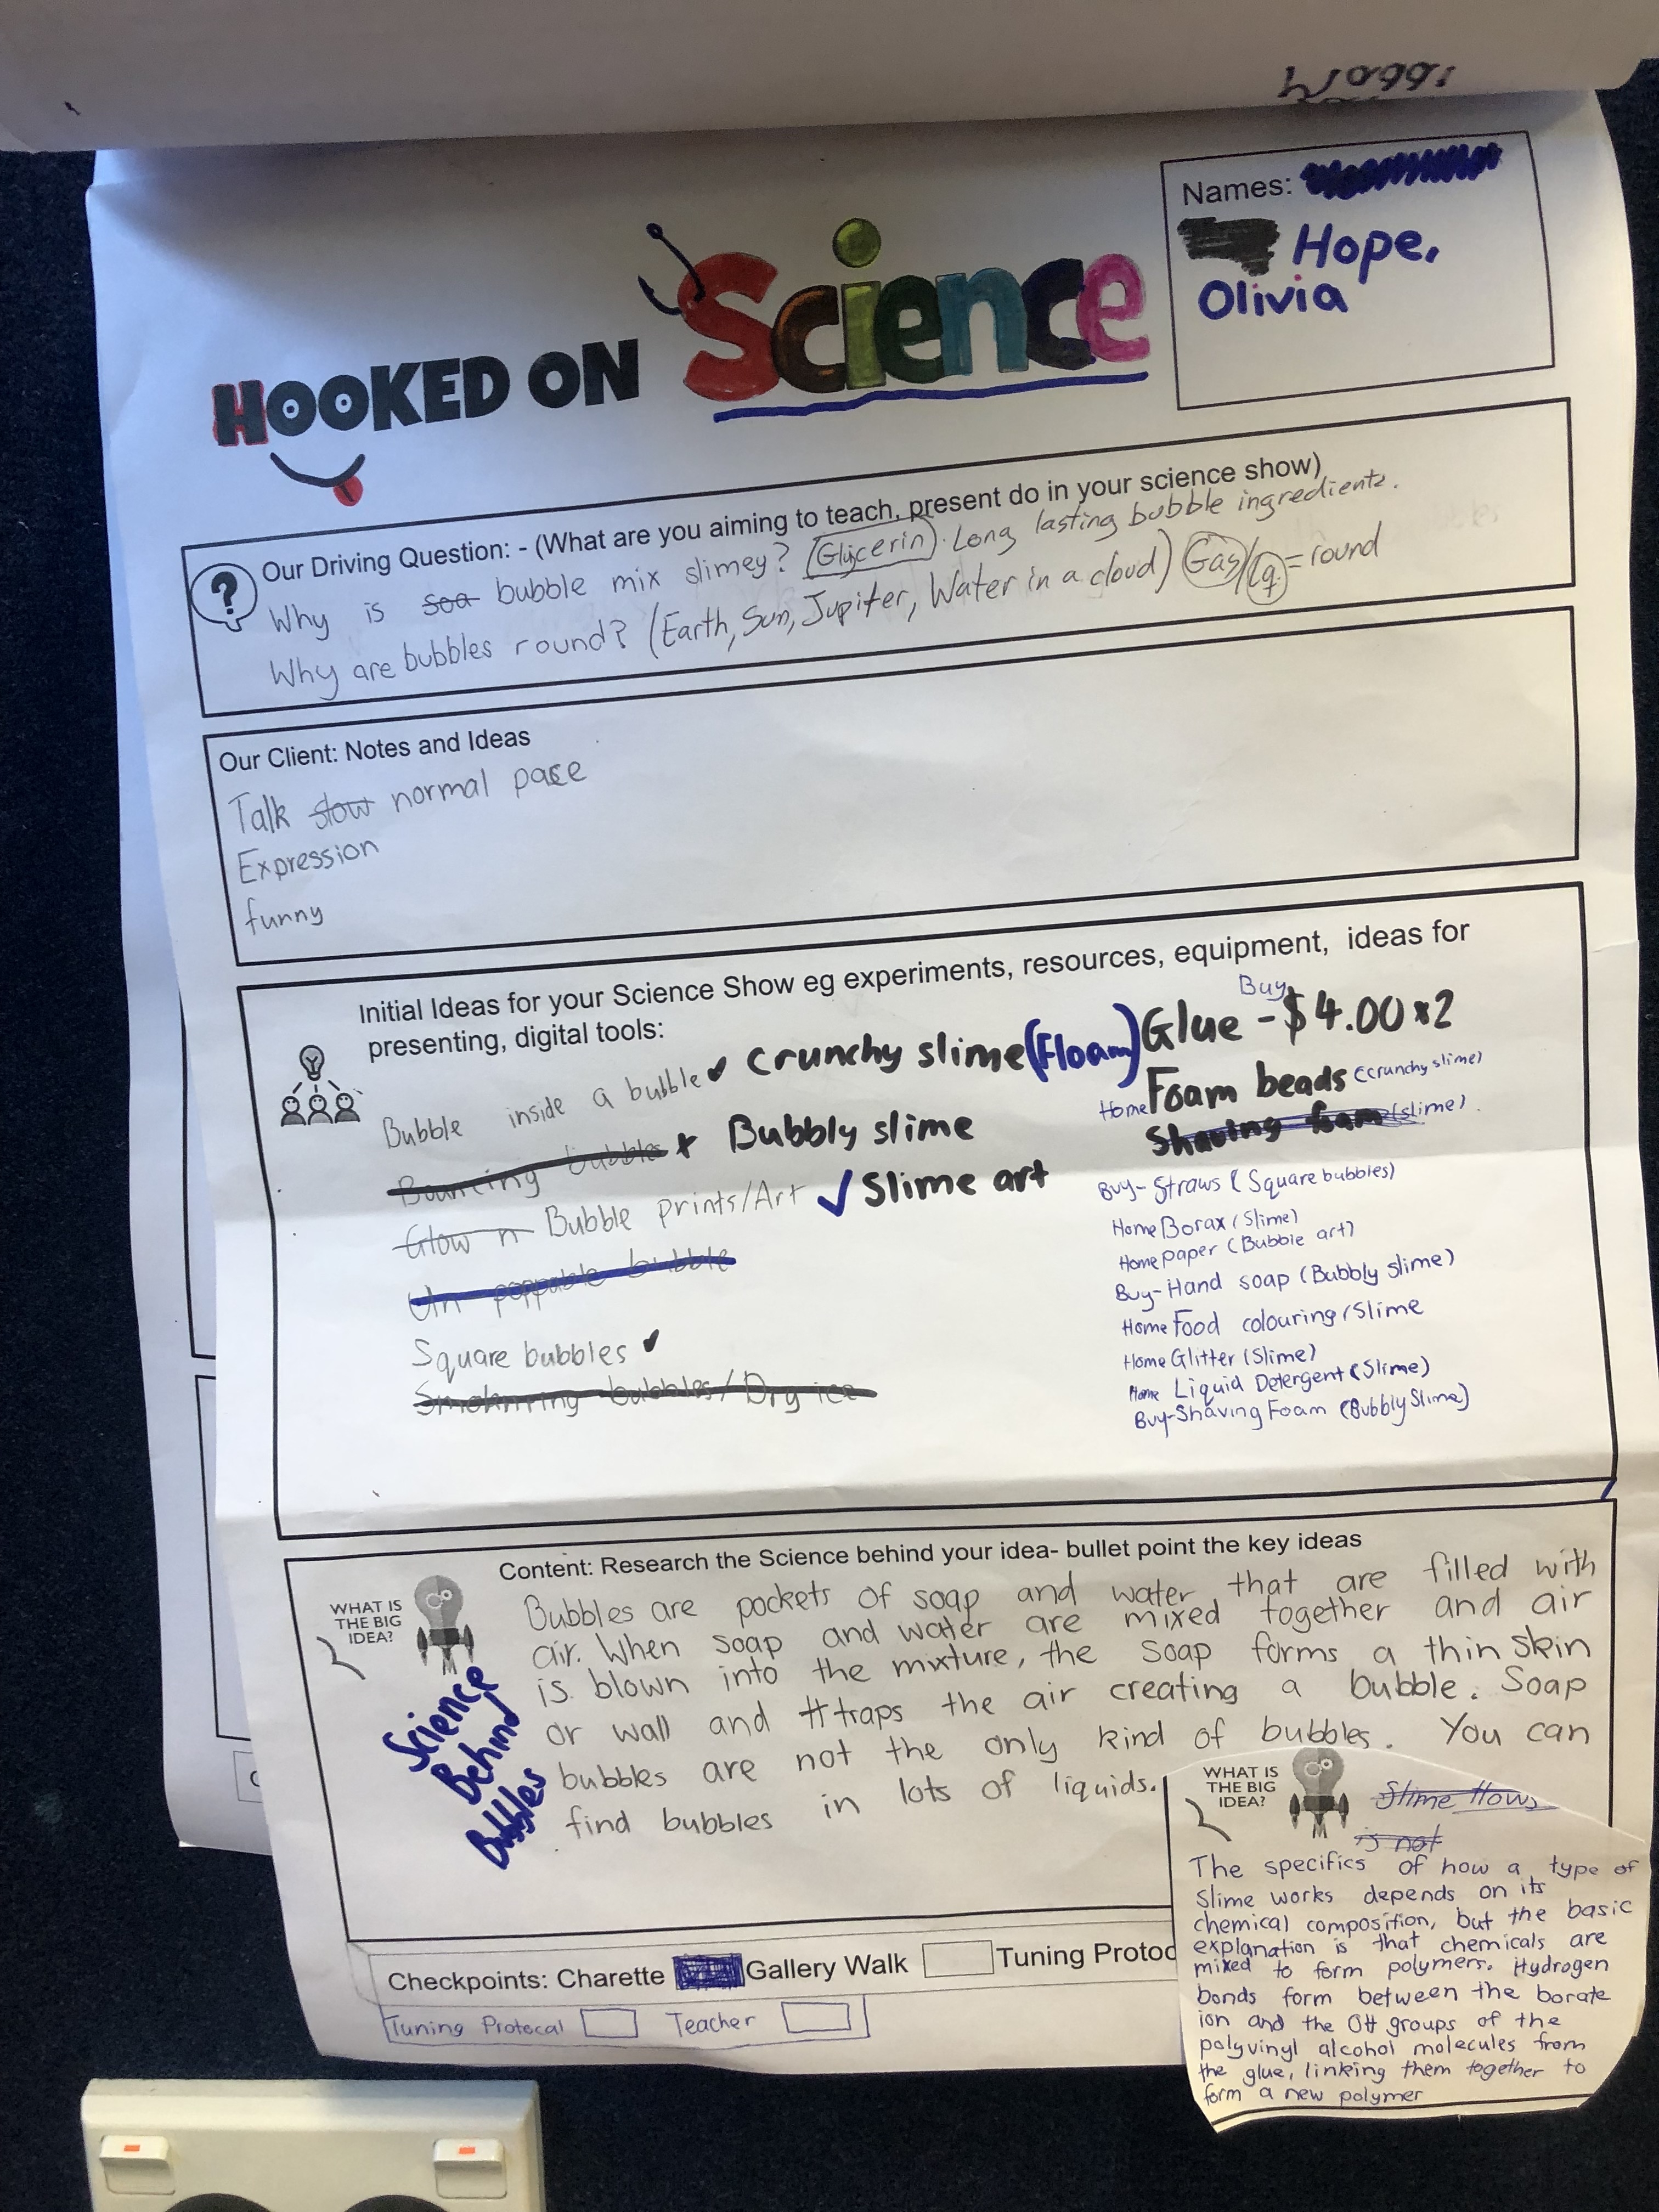 Names:
Hope,
Olivia
HOOKED ON Science
Our Driving Question: - (What are you aiming to teach, present do in your science show)
Why is soa bubble mix slimey? (Glycerin). Long lasting bubble ingredients.
Why are bubbles round? (Earth, Sun, Jupiter, Water in a cloud) Gas/Lq = round
Our Client: Notes and Ideas
Talk slow normal pace
Expression
funny
Initial Ideas for your Science Show eg experiments, resources, equipment, ideas for
presenting, digital tools:
Bubble inside a bubble ✓ Crunchy slime (Floam)
Bouncing bubbles x Bubbly slime
Glow n Bubble prints/Art ✓ Slime art
Un poppable bubble
Square bubbles ✓
bubbles/Dry ice
Buy
Glue - $4.00 x2
Home Foam beads (crunchy slime)
Shaving foam (slime).
Buy- Straws (Square bubbles)
Home Borax (Slime)
Home paper (Bubble art)
Buy-Hand soap (Bubbly slime)
Home Food colouring (Slime
Home Glitter (Slime)
Home Liquid Detergent (Slime)
Buy-Shaving Foam (Bubbly Slime)
Content: Research the Science behind your idea- bullet point the key ideas
WHAT IS
THE BIG
IDEA?
Science
Behind
Bubbles
Bubbles are pockets of soap and water that are filled with
air. When soap and water are mixed together and air
is blown into the mixture, the soap forms a thin skin
or wall and traps the air creating a bubble. Soap
bubbles are not the only kind of bubbles. You can
find bubbles in lots of liquids.
WHAT IS
THE BIG
IDEA?
Slime flows
is not
The specifics of how a type of
Slime works depends on its
chemical composition, but the basic
explanation is that chemicals are
mixed to form polymers. Hydrogen
bonds form between the borate
ion and the OH groups of the
polyvinyl alcohol molecules from
the glue, linking them together to
form a new polymer
Checkpoints: Charette Gallery Walk Tuning Protoc
Tuning Protocal Teacher